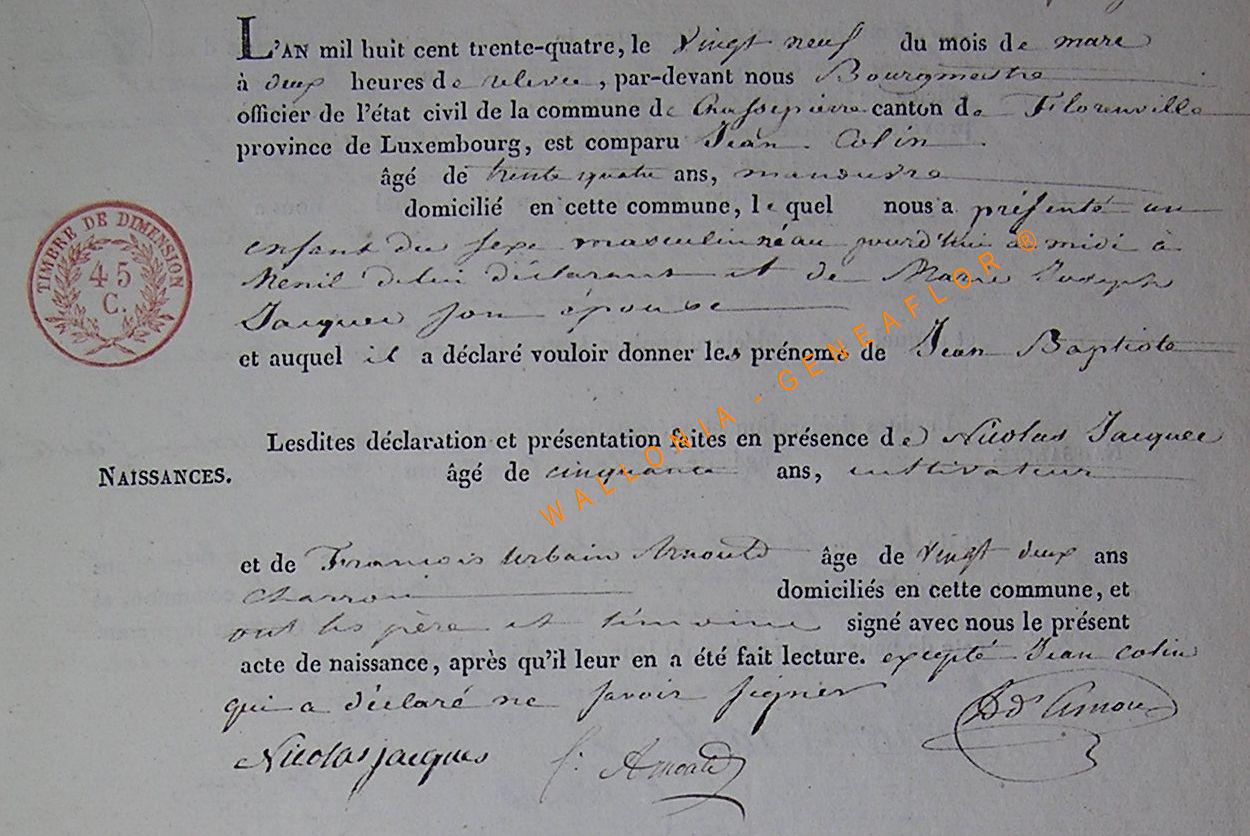 L'AN mil huit cent trente-quatre, le vingt neuf du mois de mars
à deux heures de relevée, par-devant nous Bourgmestre
officier de l'état civil de la commune de Chassepierre canton de Florenville
province de Luxembourg, est comparu Jean Colin
âgé de trente quatre ans, manouvre
domicilié en cette commune, le quel nous a présenté un
enfant du sexe masculin né aujourd'hui à midi à
Menil de lui déclarant et de Marie Joseph
Jacques son épouse
et auquel il a déclaré vouloir donner les prénoms de Jean Baptiste
Lesdites déclaration et présentation faites en présence de Nicolas Jacques
NAISSANCES. âgé de cinquante ans, cultivateur
et de Francois Urbain Arnould âge de vingt deux ans
charron domiciliés en cette commune, et
ont les père et témoins signé avec nous le présent
acte de naissance, après qu'il leur en a été fait lecture. excepté Jean Colin
qui a déclaré ne savoir signer
Nicolas jacques
f. Arnould
TIMBRE DE DIMENSION
45
C.
WALLONIA - GENEAFLOR ®